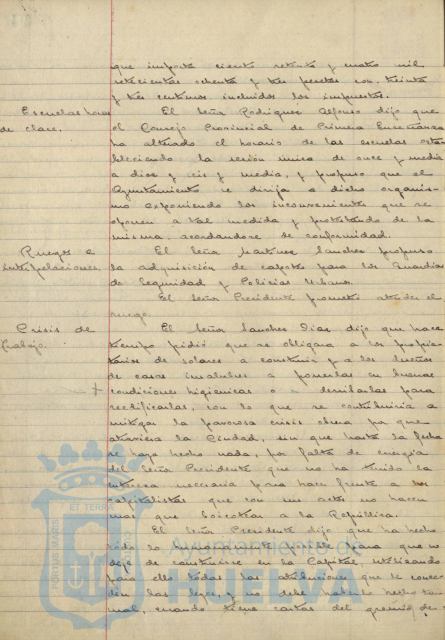 que importa ciento setenta y cuatro mil
setecientas ochenta y tres pesetas con treinta
y tres centimos incluidos los impuestos.
Escuelas horas de clase.
El Señor Rodriguez Alfonso dijo que
el Consejo Provincial de Primera Enseñanza
ha alterado el horario de las escuelas esta-
bleciendo la sesión unica de once y media
a dies y seis y media, y propuso que el
Ayuntamiento se dirija a dicho organis-
mo exponiendo los inconvenientes que se
oponen a tal medida y protestando de la
misma, acordandose de conformidad.
Ruegos e interpelaciones.
El Señor Martinez Sanchez propuso
la adquisición de capotes para los Guardias
de Seguridad y Policias Urbanos.
El Señor Presidente prometió atender el
ruego.
Crisis de trabajo.
El Señor Sanchez Dias dijo que hace
tiempo pidió que se obligara a los propie-
tarios de solares a construir y a los dueños
de casas insalubres a ponerlas en buenas
condiciones higienicas o a derribarlas para
reedificarlas, con lo que se contribuiria a
mitigar la pavorosa crisis obrera por que
atraviesa la Ciudad, sin que hasta la fecha
se haya hecho nada, por falta de energia
del Señor Presidente que no ha tenido la
entereza necesaria para hacer frente a los
capitalistas que con sus actos no hacen
mas que boicotear a la República.
El Señor Presidente dijo que ha hecho
todo lo humanamente posible para que no
deje de construirse en la Capital, utilizando
para ello todas las atribuciones que le conce-
den las leyes, y no debe haberlo hecho tan
mal, cuando tiene cartas del gremio de
Ayuntamiento de
HUELVA